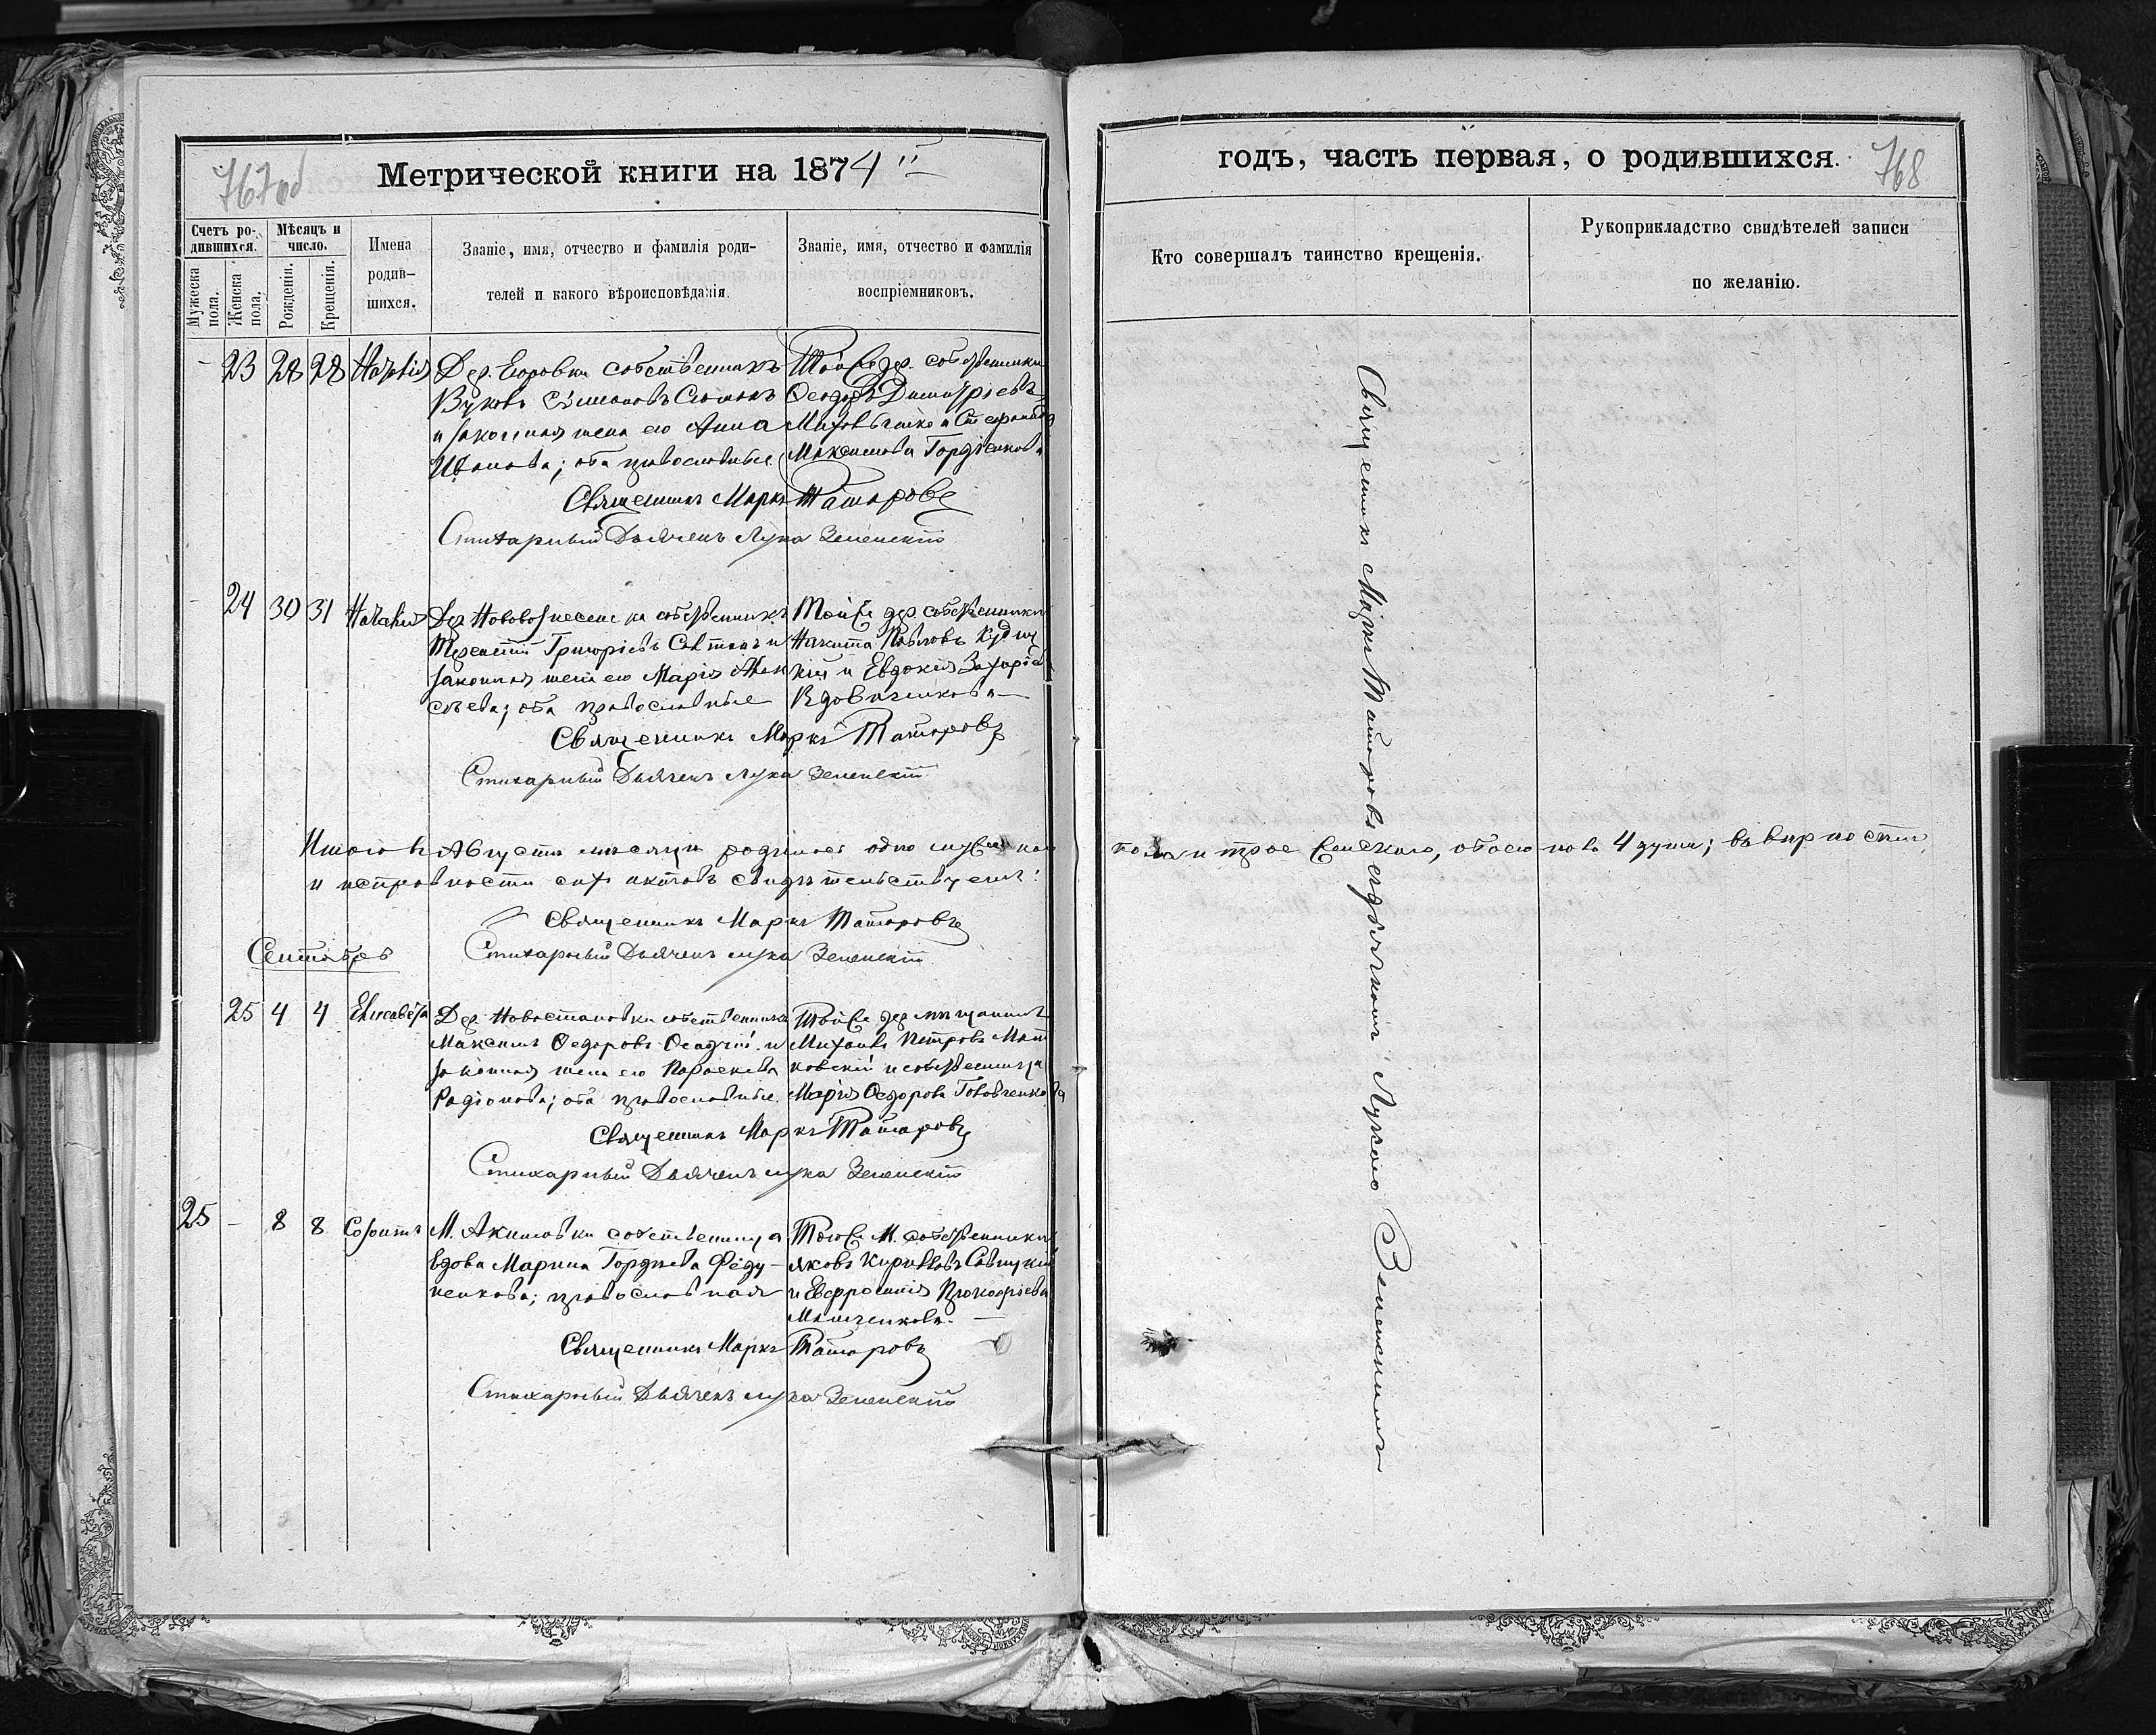 767об
Метрической книги на 1874й
Счетъ ро-
дившихся.
Мужеска пола.
Женска пола.
Мѣсяцъ и
число.
Рожденія.
Крещенія.
Имена
родив-
шихся.
Званіе, имя, отчество и фамилія роди-
телей и какого вѣроисповѣданія.
Званіе, имя, отчество и фамилія
воспріемниковъ.
- 23 28 28
Дер. собственникъ
и законная жена его Анна
Иванова; оба православные
Той же дер. собственники
Ѳеодоръ Димитріевъ
и Стефанида
Максимова Гордѣенкова
Священникъ Маркъ Татаровъ
Стихарный Дьячекъ Лука Зеленскій
- 24 30 31 Наталія
Дер. Нововознесенки собственникъ
Терентій Григорьевъ и
законная жена его Марія Алек
сѣева; оба православные
Той же дер. собственники
Никита Павловъ
кій и Евдокія Захаріева
Вдовиченкова
Священникъ Маркъ Татаровъ
Стихарный Дьячекъ Лука Зеленскій
Итого въ Августѣ мѣсяцѣ родилось одно мужескаго
и исправности сихъ актовъ свидѣтельствуемъ:
Священникъ Маркъ Татаровъ
Стихарный Дьячекъ Лука Зеленскій
Сентябрь
25 4 4 Елисавета
Дер. Новостановки собственникъ
Максимъ Ѳедоровъ Осадчій и
законная жена его Параскева
Родіонова; оба православные
Той же дер. мѣщанинъ
Михаилъ Петровъ
ковскій и собственница
Марія Ѳедорова
Священникъ Маркъ Татаровъ
Стихарный Дьячекъ Лука Зеленскій
25 - 8 8 Созонтъ
М. Акимовки собственница
вдова Марина Гордѣева Феду-
ненкова; православная
Того же М. собственники
Яковъ Кирилловъ Савицкій
и Евфросинія Прокофіева
Священникъ Маркъ Татаровъ
Стихарный Дьячекъ Лука Зеленскій
годъ, часть первая, о родившихся.
768
Кто совершалъ таинство крещенія.
Рукоприкладство свидѣтелей записи
по желанію.
пола и трое женскаго, обоего пола 4 души; въ вѣрности
Священникъ Маркъ Татаровъ съ дьячкомъ Лукою Зеленскимъ